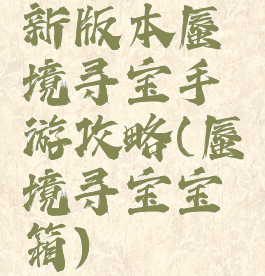 新版本蜃
境寻宝手
游攻略(蜃
境寻宝宝
箱)